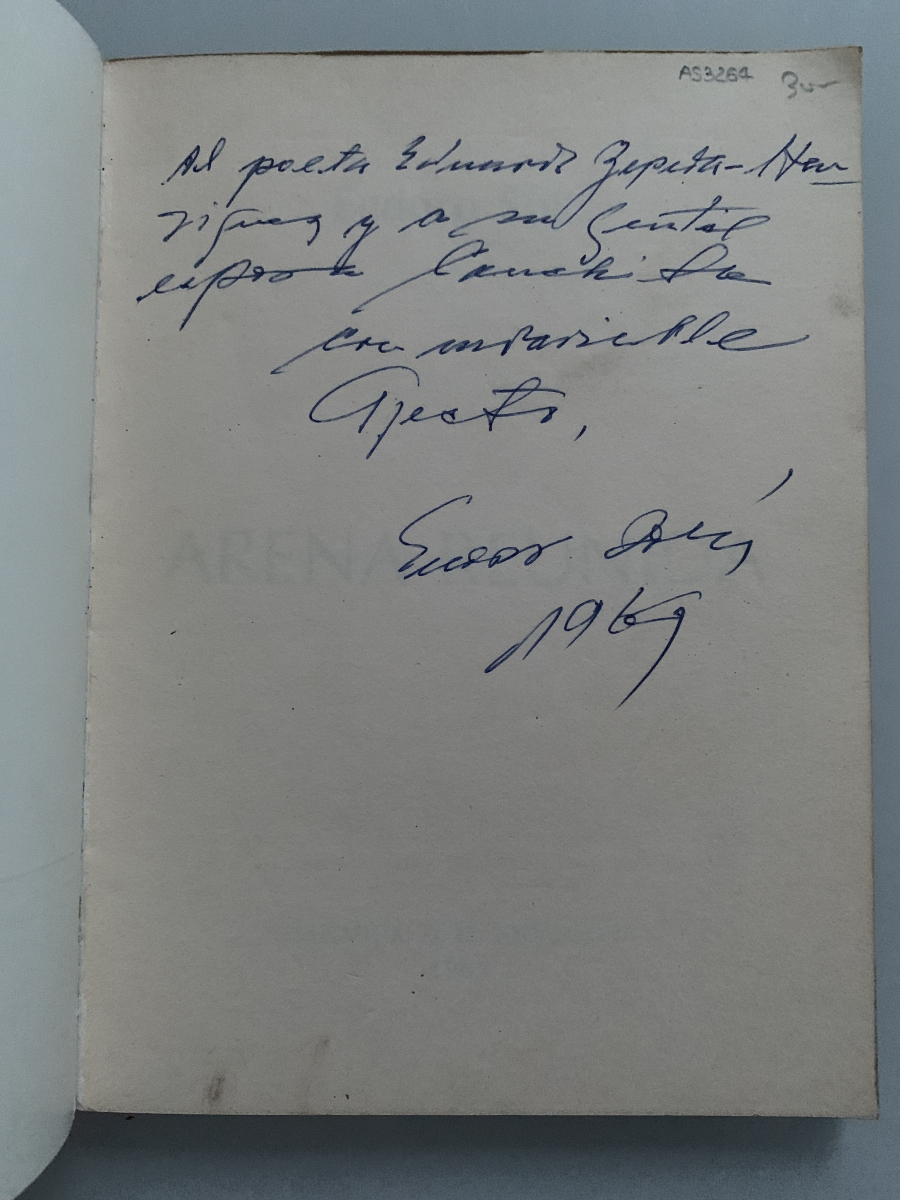 AS3264
Al poeta Eduardo Zepeda-Hen-
ríquez y a su gentil
esposa Conchita
con invariable
afecto,
1969
ARENA